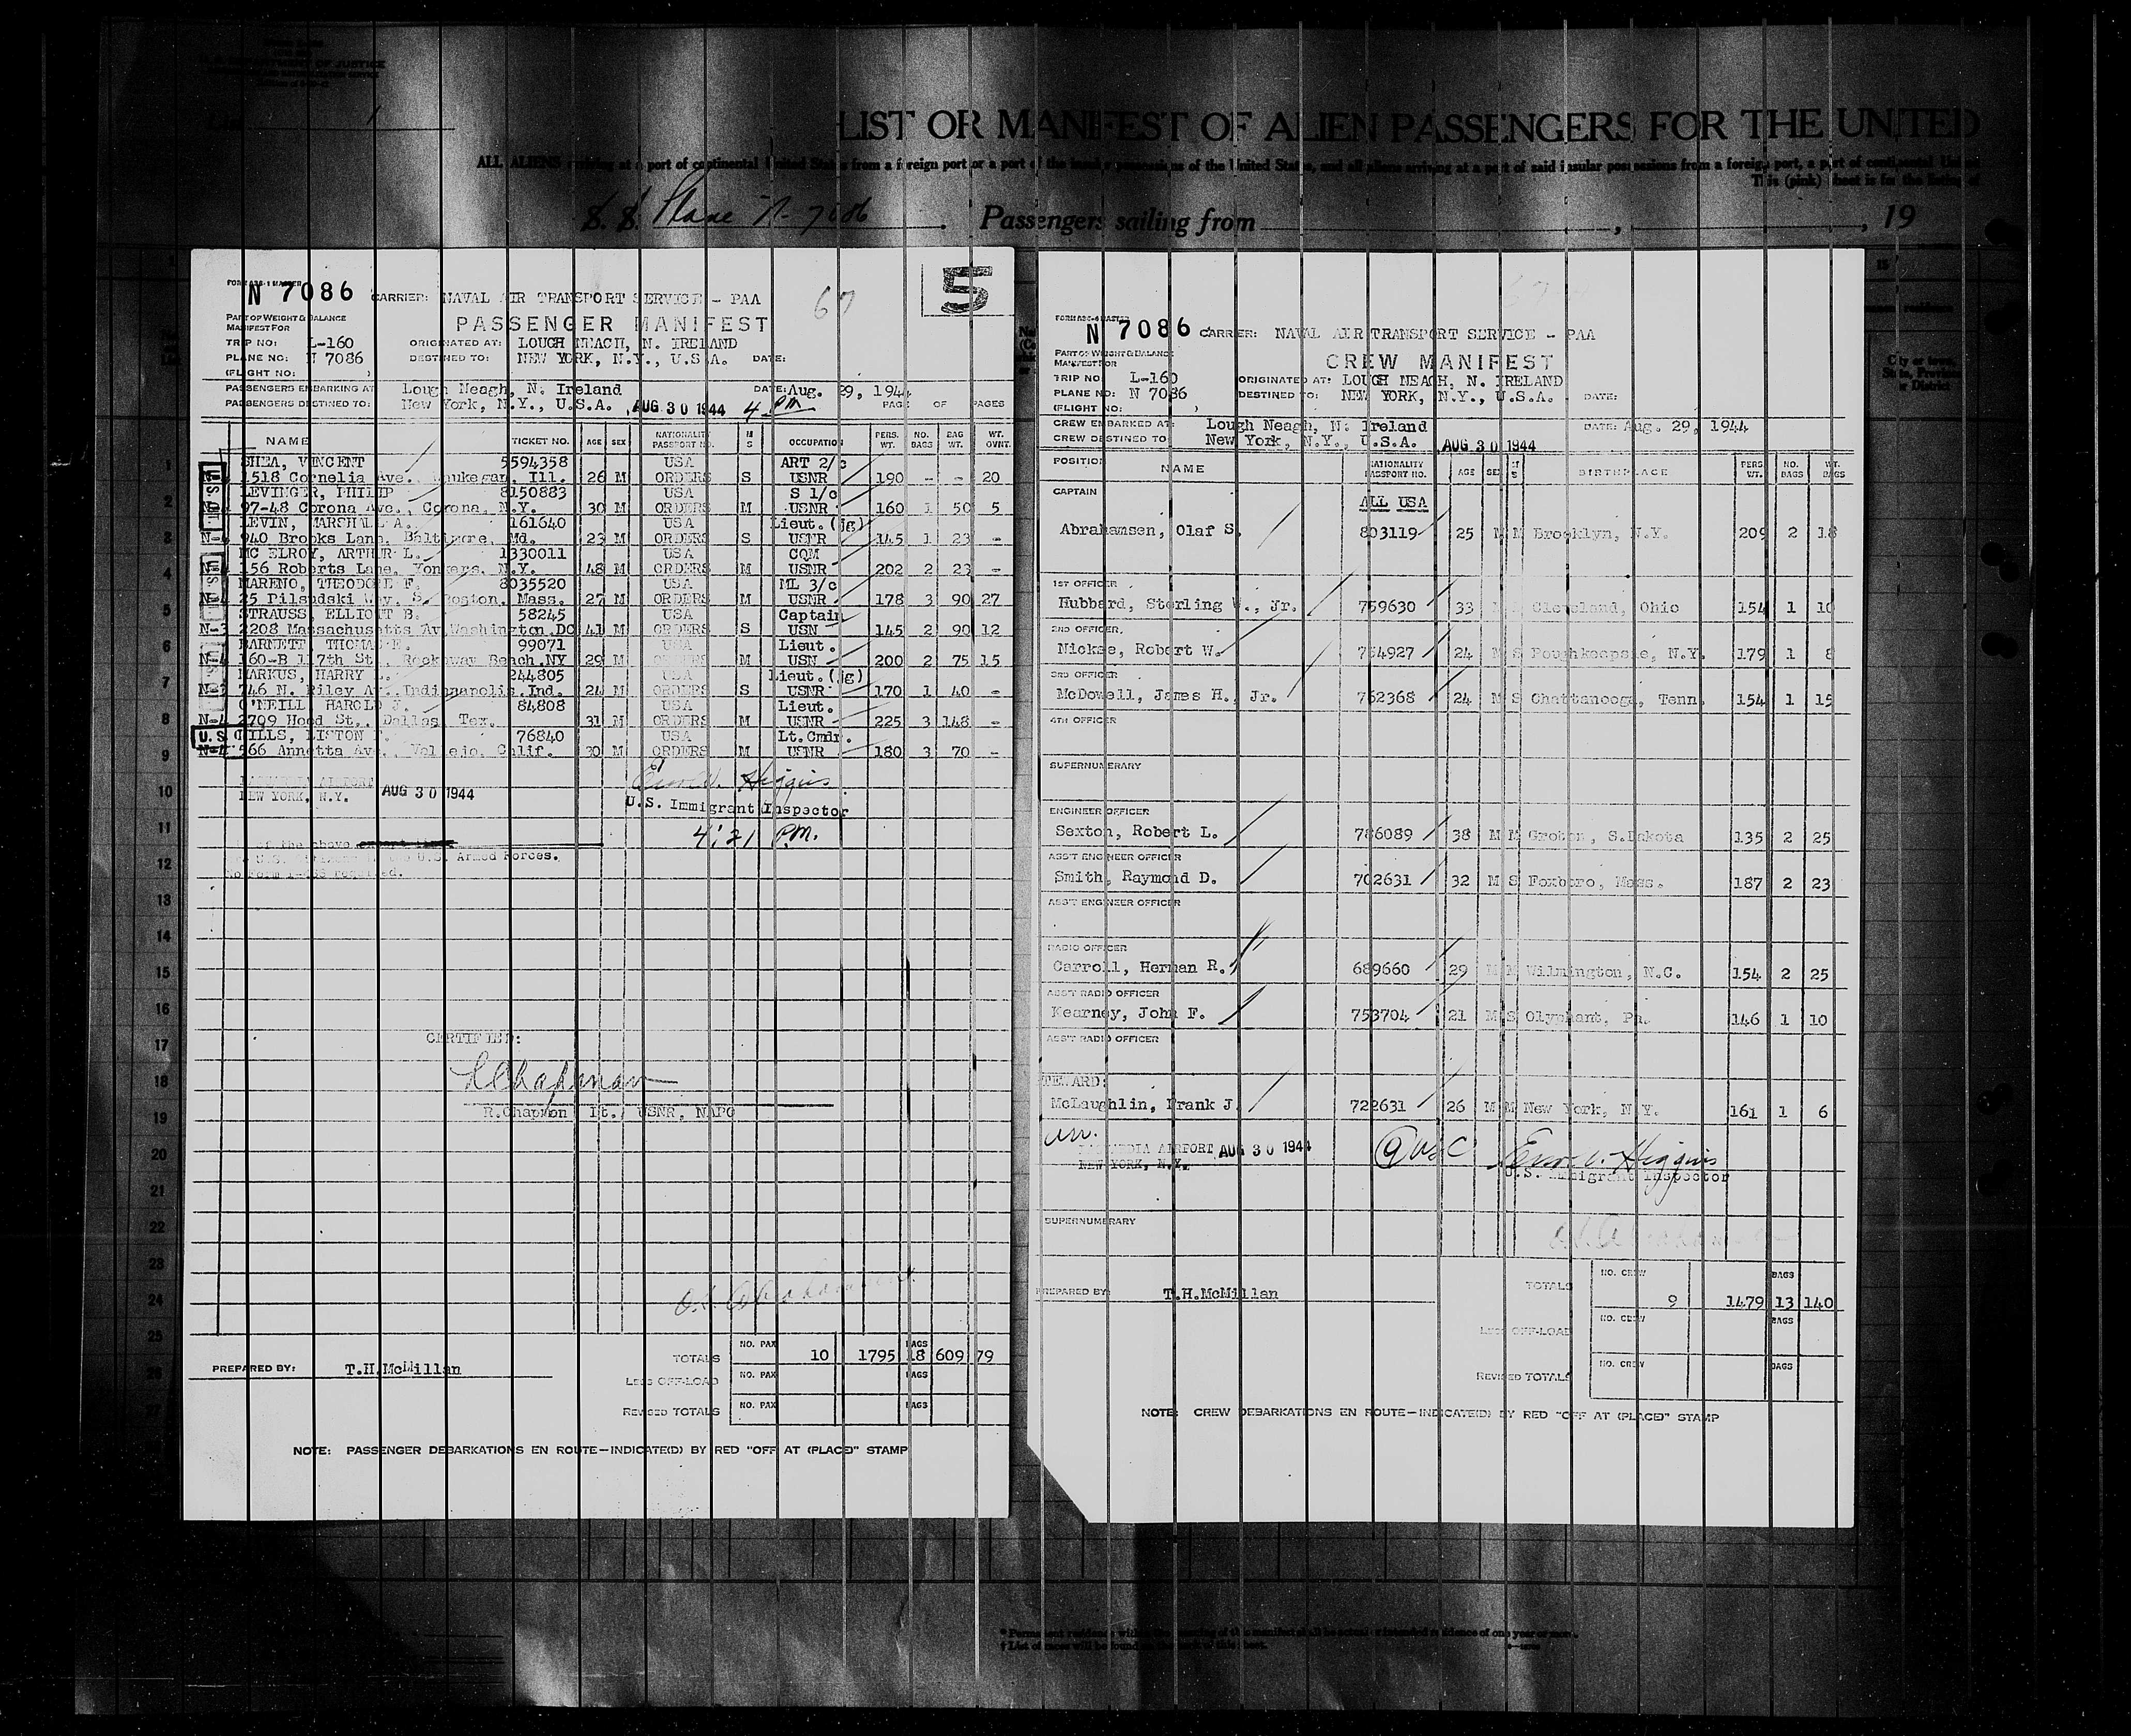 U.S. DEPARTMENT OF JUSTICE
LIST OR MANIFEST OF ALIEN PASSENGERS FOR THE UNITED
ALL ALIENS arriving at a port of continental United States from a foreign port or a port of the insular possessions of the United States, and all aliens arriving at a port of said insular possessions from a foreign port, a port of continental United
This (pink) sheet is for the listing of
S. S. Plane N-7086 Passengers sailing from , , 19
5
FORM ABC-1 MASTER
N 7086 CARRIER: NAVAL AIR TRANSPORT SERVICE - PAA 67
PASSENGER MANIFEST
PART OF WEIGHT & BALANCE
MANIFEST FOR
TRIP NO: L-160 ORIGINATED AT: LOUGH NEACH, N. IRELAND
PLANE NO: N 7086 DESTINED TO: NEW YORK, N.Y., U.S.A. DATE:
(FLIGHT NO: )
PASSENGERS EMBARKING AT Lough Neagh, N. Ireland DATE: Aug. 29, 1944
PASSENGERS DESTINED TO: New York, N.Y., U.S.A. AUG 30 1944 4 PM PAGE OF PAGES
NAME TICKET NO. AGE SEX NATIONALITY PASSPORT NO. M S OCCUPATION PERS. WT. NO. BAGS BAG WT. WT. OVNT.
1 SHEA, VINCENT 5594358 USA ART 2/c
1518 Cornelia Ave., Waukegan, Ill. 26 M ORDERS S USNR 190 - - 20
2 LEVINGER, PHILIP 8150883 USA S 1/c
97-48 Corona Ave., Corona, N.Y. 30 M ORDERS M USNR 160 1 50 5
LEVIN, MARSHALL A. 161640 USA Lieut. (jg)
3 N-4 940 Brooks Lane, Baltimore, Md. 23 M ORDERS S USNR 145 1 23 -
MC ELROY, ARTHUR L. 1330011 USA CQM
4 N-4 156 Roberts Lane, Yonkers, N.Y. 48 M ORDERS M USNR 202 2 23 -
MARENO, THEODORE F. 8035520 USA ML 3/c
5 N-4 25 Pilsudski Way, S. Boston, Mass. 27 M ORDERS M USNR 178 3 90 27
STRAUSS, ELLIOTT B. 58245 USA Captain
N-3 2208 Massachusetts Av Washington DC 41 M ORDERS S USN 145 2 90 12
6 BARNETT THOMAS E. 99071 USA Lieut.
N-4 160-B 117th St., Rockaway Beach, NY 29 M ORDERS M USN 200 2 75 15
7 MARKUS, HARRY L. 244805 USA Lieut. (jg)
N-3 746 N. Riley Av. Indianapolis, Ind. 24 M ORDERS S USNR 170 1 40 -
O'NEILL HAROLD J. 84808 USA Lieut.
8 N-4 2709 Hood St., Dallas, Tex. 31 M ORDERS M USNR 225 3 148 -
U.S. 76840 USA Lt. Cmdr.
9 N-4 566 Annetta Ave., Vallejo, Calif. 30 M ORDERS M USNR 180 3 70 -
10 NEW YORK, N.Y. AUG 30 1944 Higgins
U.S. Immigrant Inspector
11 4:21 P.M.
of the above except lines
12 U.S. Armed Forces.
No Form required.
13
14
15
16
17 CERTIFIED:
18 R Chapman
19 R.Chapmon Lt. USNR, NAPO
20
21
22
23
24 O. S. Abrahamsen
25
TOTALS NO. PAX 10 1795 BAGS 18 609 79
PREPARED BY: T.H.McMillan
26 LESS OFF-LOAD NO. PAX BAGS
27 REVISED TOTALS NO. PAX BAGS
NOTE: PASSENGER DEBARKATIONS EN ROUTE—INDICATE(D) BY RED "OFF AT (PLACE)" STAMP
FORM ABC-6 MASTER
N 7086 CARRIER: NAVAL AIR TRANSPORT SERVICE - PAA
CREW MANIFEST
PART OF WEIGHT & BALANCE
MANIFEST FOR
TRIP NO: L-160 ORIGINATED AT: LOUGH NEAGH, N. IRELAND
PLANE NO: N 7086 DESTINED TO: NEW YORK, N.Y., U.S.A. DATE:
(FLIGHT NO: )
CREW EMBARKED AT: Lough Neagh, N. Ireland DATE: Aug. 29, 1944
CREW DESTINED TO: New York, N.Y., U.S.A. AUG 30 1944
POSITION NAME NATIONALITY PASSPORT NO. AGE SEX M S BIRTHPLACE PERS. WT. NO. BAGS WT. BAGS
CAPTAIN ALL USA
Abrahamsen, Olaf S. 803119 25 M M Brooklyn, N.Y. 209 2 18
1ST OFFICER
Hubbard, Sterling W., Jr. 759630 33 M Cleveland, Ohio 154 1 10
2ND OFFICER
Nickse, Robert W. 754927 24 M S Poughkeepsie, N.Y. 179 1 8
3RD OFFICER
McDowell, James H., Jr. 762368 24 M S Chattanooga, Tenn. 154 1 15
4TH OFFICER
SUPERNUMERARY
ENGINEER OFFICER
Sexton, Robert L. 786089 38 M M Groton, S.Dakota 135 2 25
ASS'T ENGINEER OFFICER
Smith, Raymond D. 702631 32 M S Foxboro, Mass. 187 2 23
ASS'T ENGINEER OFFICER
RADIO OFFICER
Carroll, Herman R. 689660 29 M M Wilmington, N.C. 154 2 25
ASS'T RADIO OFFICER
Kearney, John F. 753704 21 M S Olyphant, Pa. 146 1 10
ASS'T RADIO OFFICER
STEWARD:
McLaughlin, Frank J. 722631 26 M M New York, N.Y. 161 1 6
AIRPORT AUG 30 1944 9 USC Higgins
NEW YORK, N.Y. U.S. Immigrant Inspector
SUPERNUMERARY
TOTALS NO. CREW 9 1479 BAGS 13 140
PREPARED BY: T.H.McMillan
LESS OFF-LOAD NO. CREW BAGS
REVISED TOTALS NO. CREW BAGS
NOTE: CREW DEBARKATIONS EN ROUTE—INDICATE(D) BY RED "OFF AT (PLACE)" STAMP